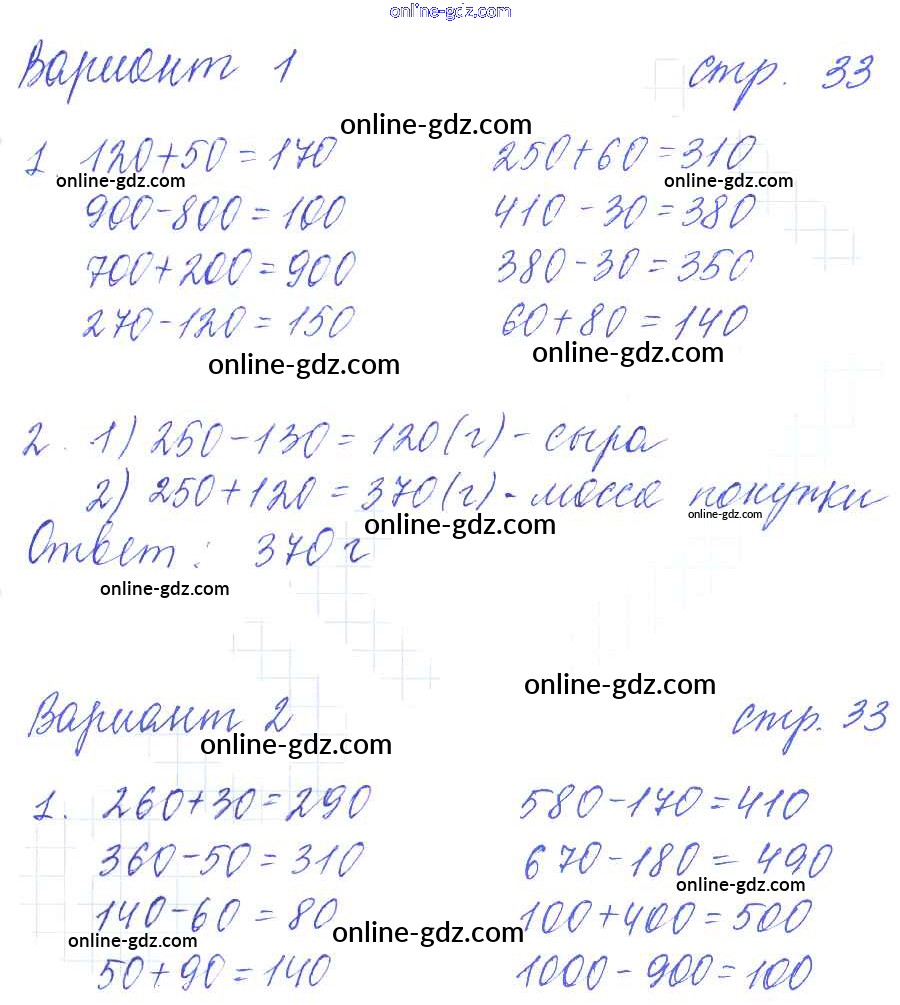 online-gdz.com
Вариант 1 стр. 33
online-gdz.com
1. 120+50=170 250+60=310
online-gdz.com online-gdz.com
900-800=100 410-30=380
700+200=900 380-30=350
270-120=150 60+80=140
online-gdz.com online-gdz.com
2. 1) 250-130=120(г)-сыра
2) 250+120=370(г)-масса покупки
online-gdz.com online-gdz.com
Ответ: 370 г
online-gdz.com
online-gdz.com
Вариант 2 стр. 33
online-gdz.com
1. 260+30=290 580-170=410
360-50=310 670-180=490
online-gdz.com
140-60=80 100+400=500
online-gdz.com online-gdz.com
50+90=140 1000-900=100